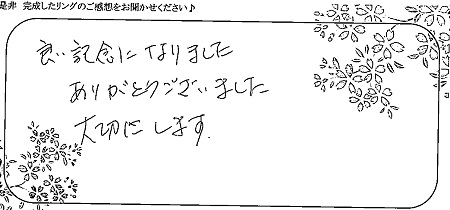 是非 完成したリングのご感想をお聞かせください♪
良い記念になりました
ありがとうございました
大切にします.